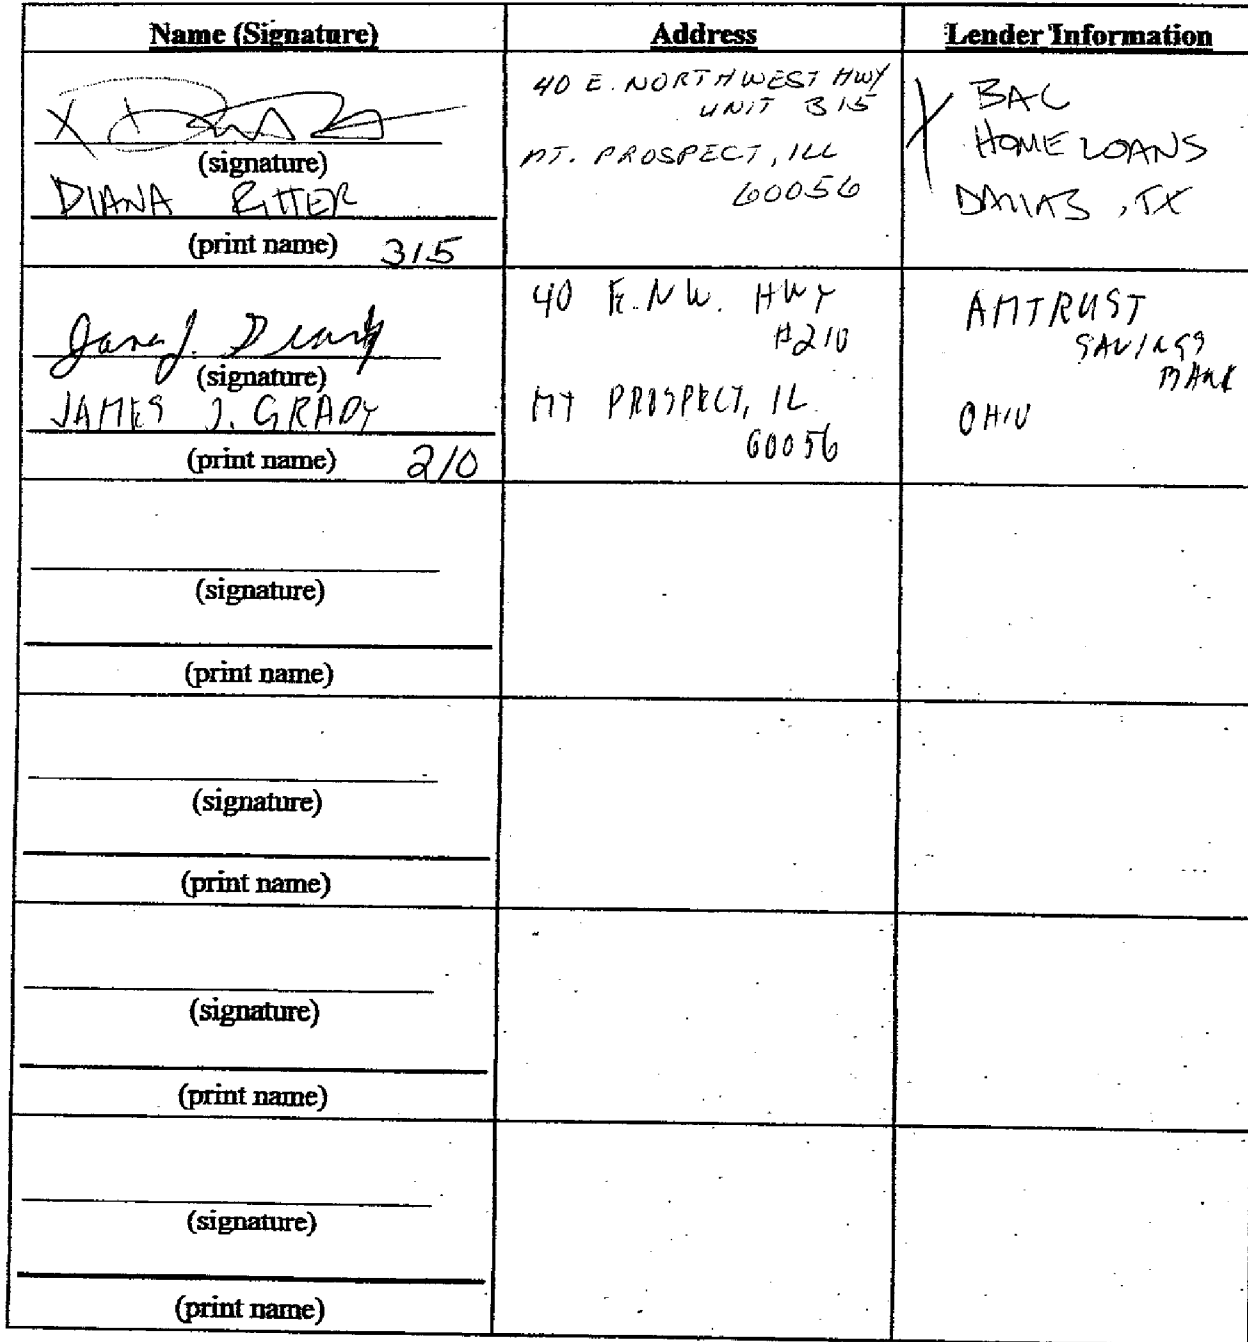 Name (Signature)
Address
Lender Information
X
(signature)
DIANA RITTER
(print name) 315
40 E. NORTHWEST HWY
UNIT 315
MT. PROSPECT, ILL
60056
X BAC
HOME LOANS
DALLAS, TX
(signature)
JAMES J. GRADY
(print name) 210
40 E. N W. HWY
#210
MT PROSPECT, IL
60056
AMTRUST
SAVINGS
BANK
OHIO
(signature)
(print name)
(signature)
(print name)
(signature)
(print name)
(signature)
(print name)